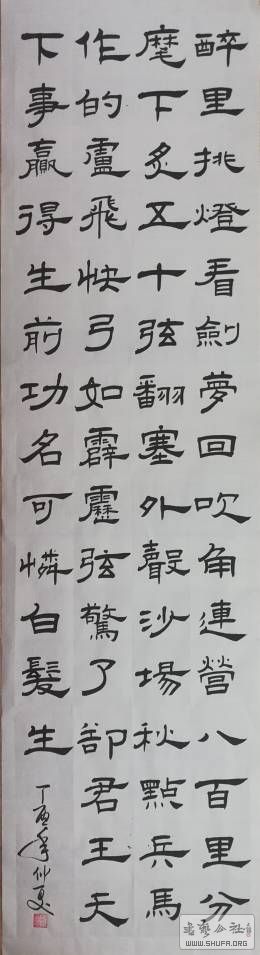 醉里挑燈看劍夢回吹角連營八百里分
麾下炙五十弦翻塞外聲沙場秋點兵馬
作的盧飛快弓如霹靂弦驚了卻君王天
下事贏得生前功名可憐白髮生
丁酉年仲夏
书艺公社
WWW.SHUFA.ORG